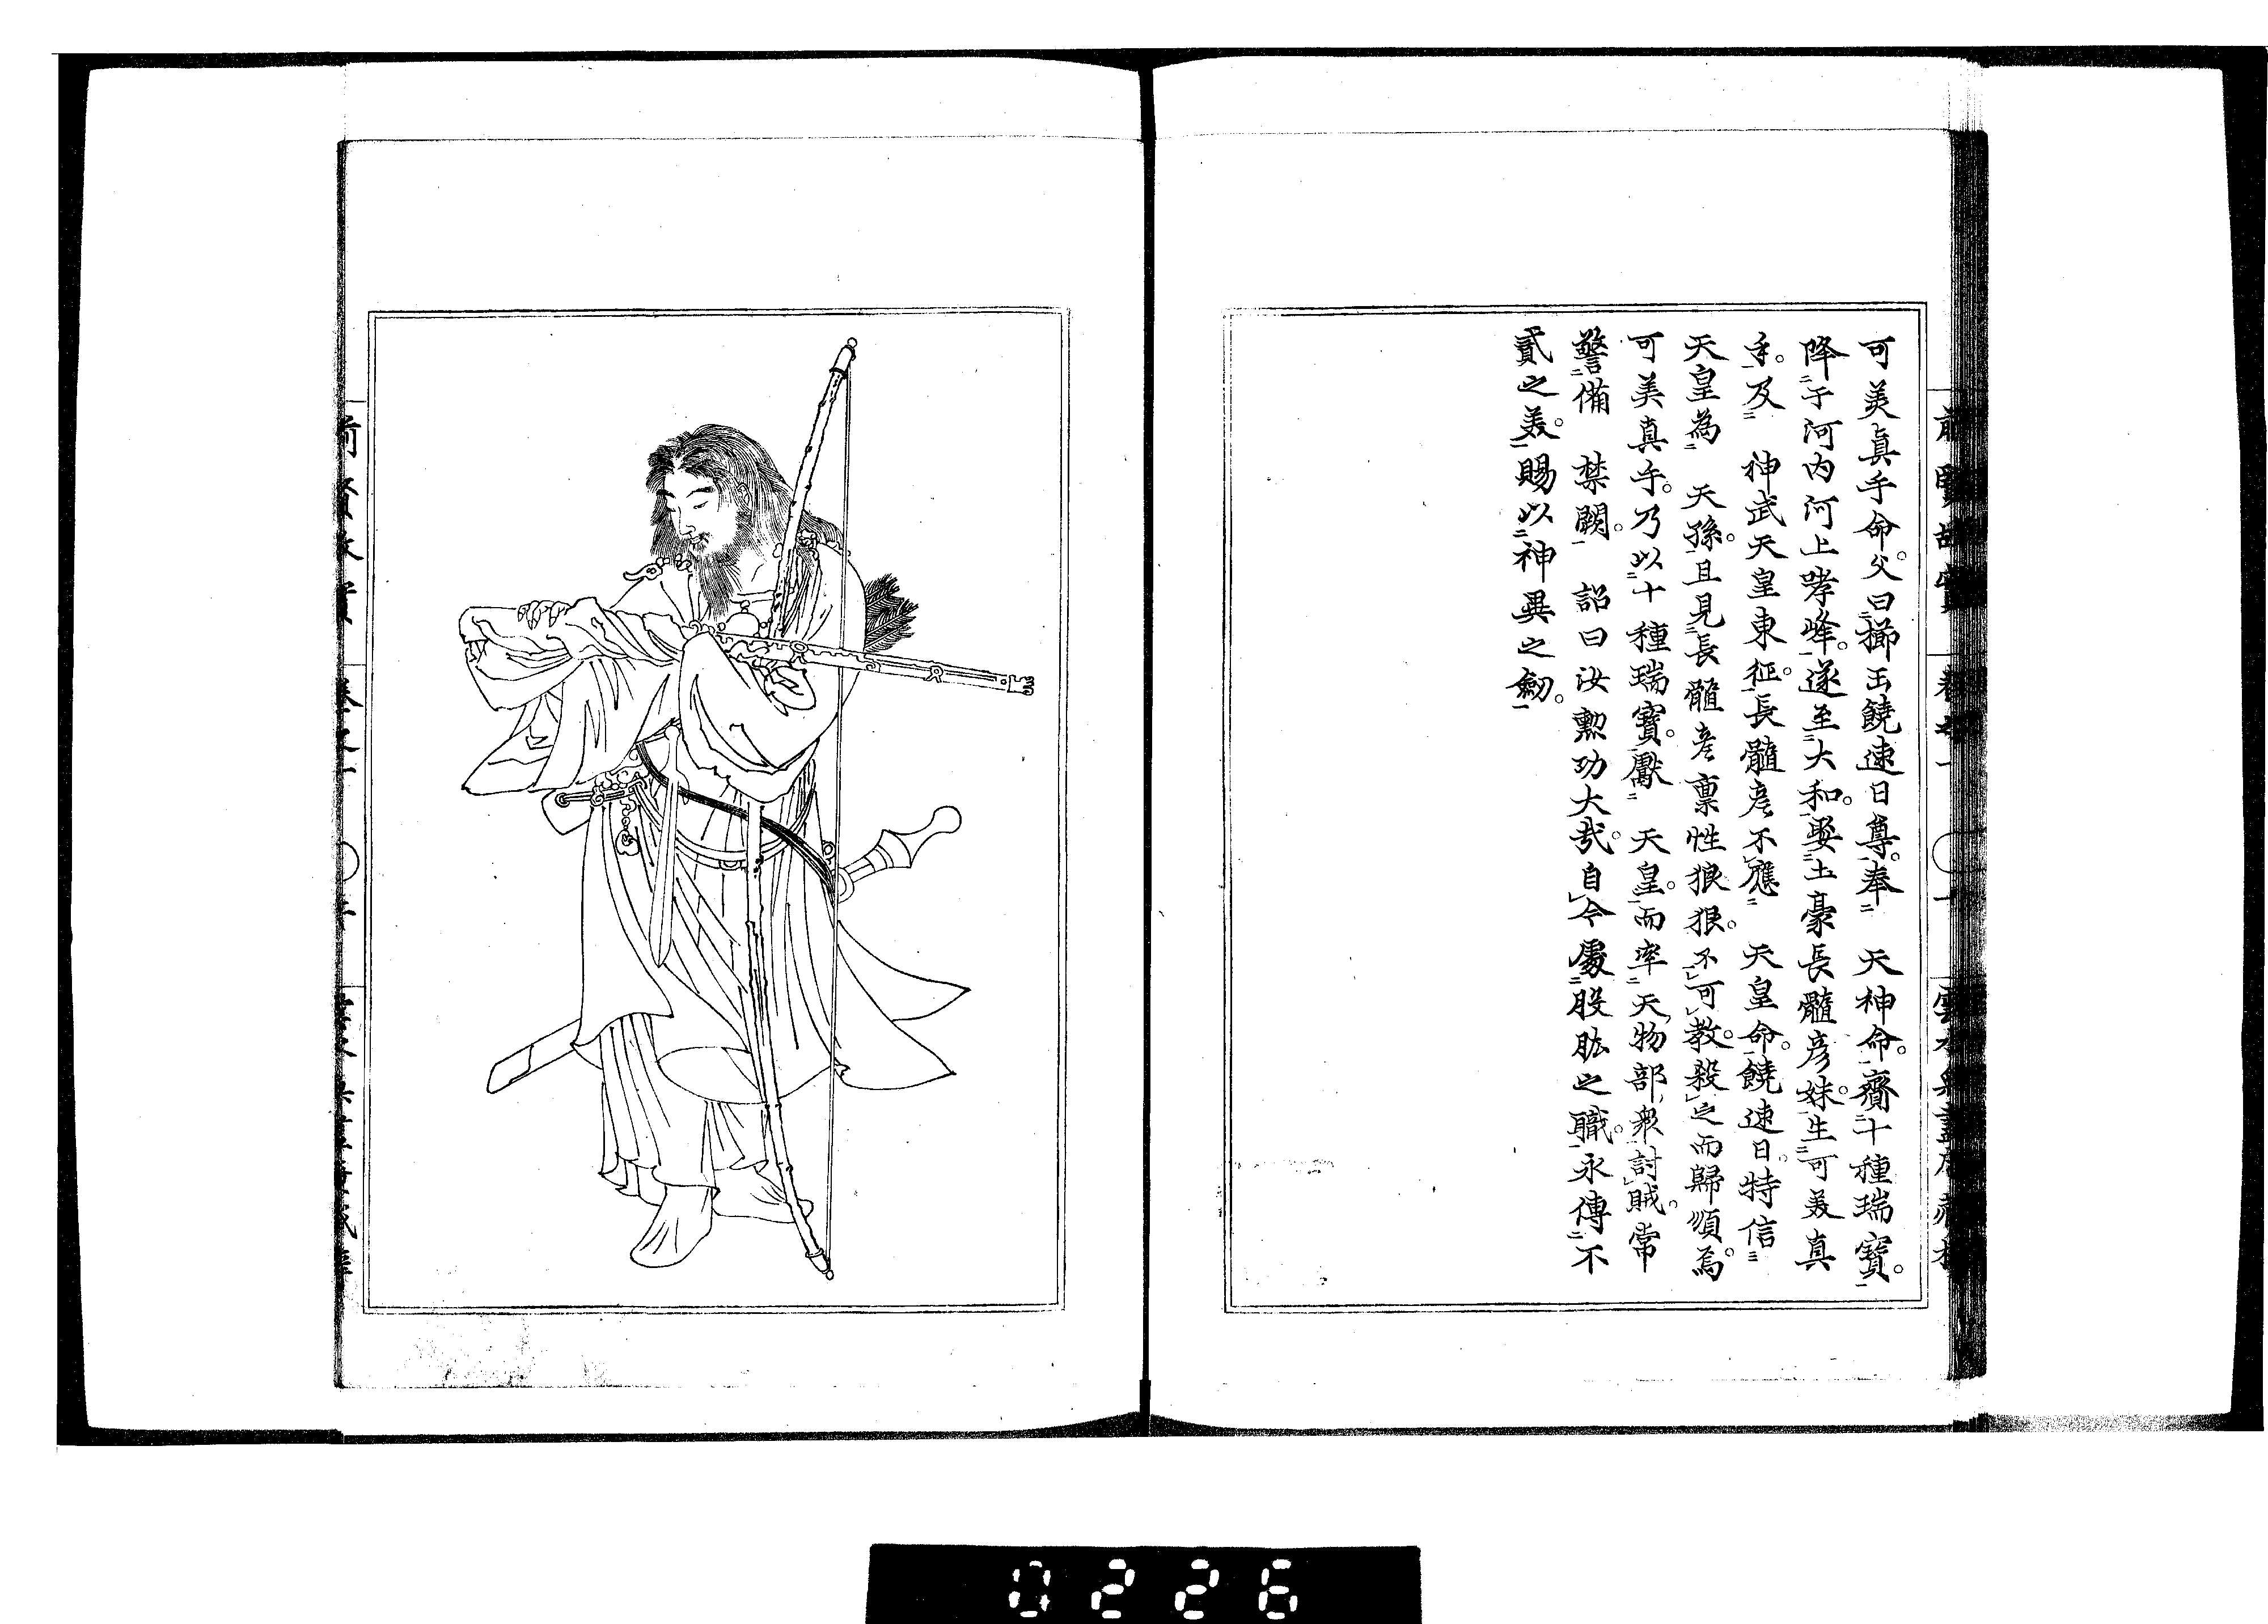 可美真手命。父曰櫛玉饒速日尊。奉 天神命。齎十種瑞寶。
降于河內河上哮峰。遂至大和。娶土豪長髓彥妹。生可美真
手。及 神武天皇東征。長髓彥不應 天皇命。饒速日。特信
天皇為 天孫。且見長髓彥稟性狼狠。不可教。殺之而歸順焉。
可美真手。乃以十種瑞寶。獻 天皇。而率天物部衆討賊。常
警備 禁闕。 詔曰汝勲功大哉。自今處股肱之職。永傳不
貳之美。賜以神異之劒。
前賢故實
0226